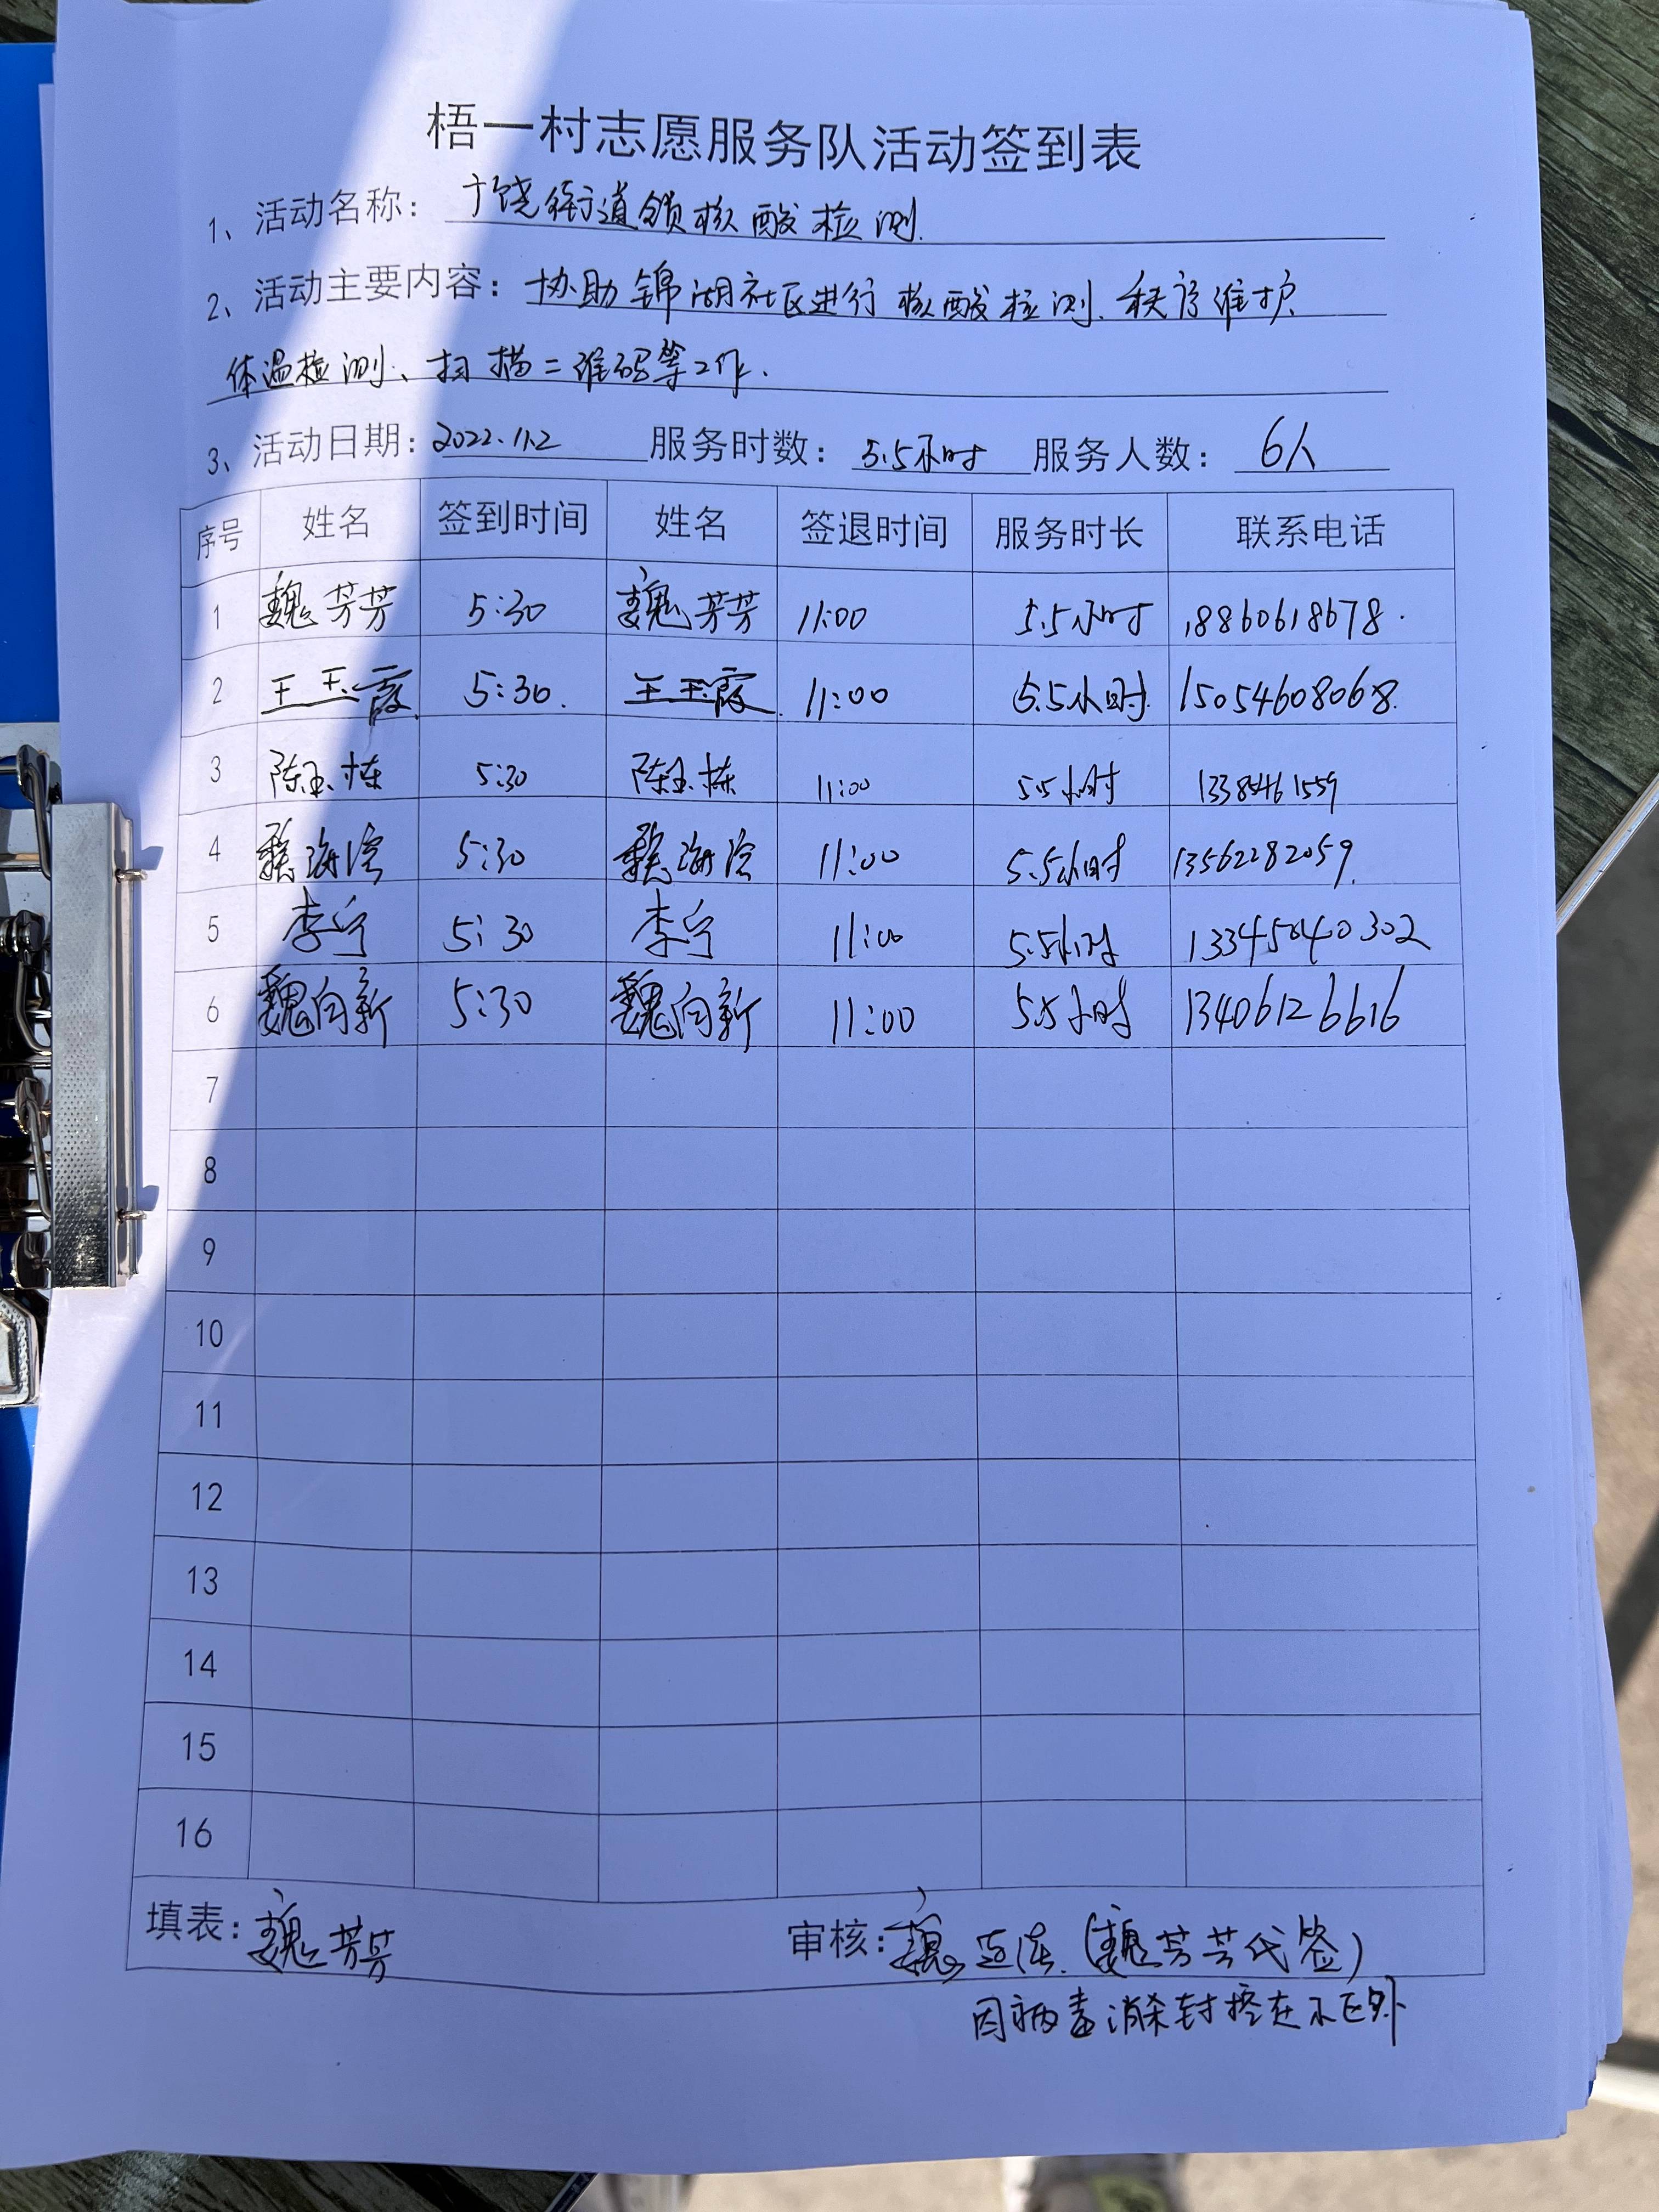 梧一村志愿服务队活动签到表
1、活动名称： 饶街道领核酸检测.
2、活动主要内容： 协助锦湖社区进行核酸检测、秩序维护
体温检测、扫描二维码等工作.
3、活动日期： 2022.11.2 服务时数： 5.5小时 服务人数： 6人
序号 姓名 签到时间 姓名 签退时间 服务时长 联系电话
1 魏芳芳 5:30 魏芳芳 11:00 5.5小时 18860618678.
2 王玉霞. 5:30. 王玉霞. 11:00 5.5小时. 15054608068.
3 陈玉栋 5:30 陈玉栋 11:00 5.5小时
4 魏海滢 5:30 魏海滢 11:00 5.5小时 13562282059.
5 李宁 5:30 李宁 11:00 5.5小时
6 魏向新 5:30 魏向新 11:00 5.5小时 13406126616
7
8
9
10
11
12
13
14
15
16
填表：魏芳芳 审核：魏 (魏芳芳代签)
因病毒消杀封控在小区外